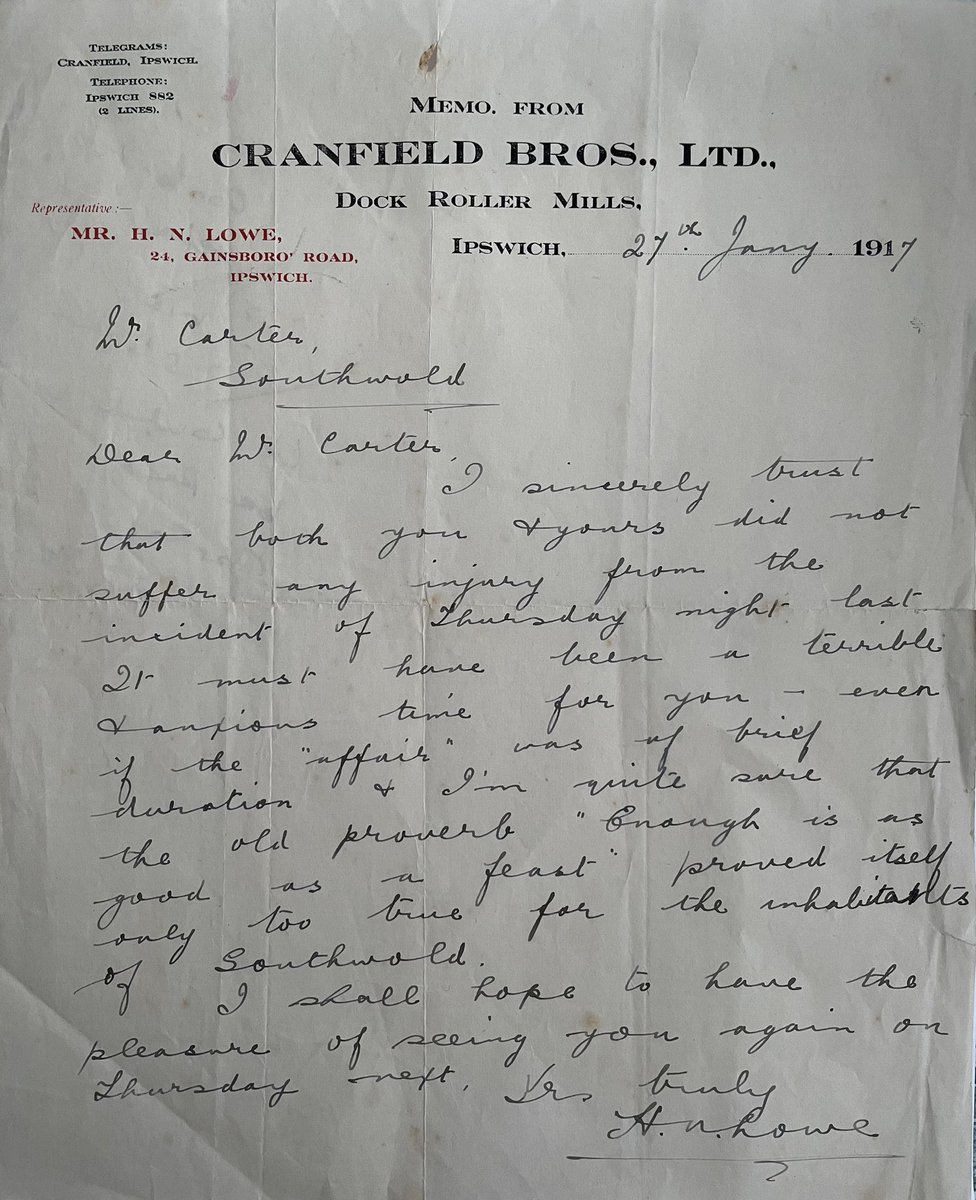 TELEGRAMS:
CRANFIELD, IPSWICH.
TELEPHONE:
IPSWICH 882
(2 LINES).
MEMO. FROM
CRANFIELD BROS., LTD.,
DOCK ROLLER MILLS,
Representative:—
MR. H. N. LOWE,
24, GAINSBORO' ROAD,
IPSWICH.
IPSWICH, 27th Jany. 1917
Mr. Carter,
Southwold
Dear Mr. Carter,
I sincerely trust
that both you & yours did not
suffer any injury from the
incident of Thursday night last.
It must have been a terrible
& anxious time for you – even
if the "affair" was of brief
duration & I'm quite sure that
the old proverb "Enough is as
good as a feast" proved itself
only too true for the inhabitants
of Southwold.
I shall hope to have the
pleasure of seeing you again on
Thursday next.
Yrs truly
H. N. Lowe